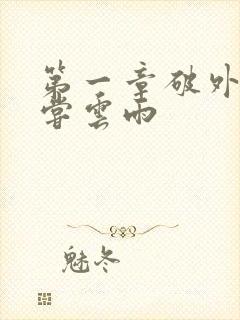 第一章破外
尝雲雨
魅冬